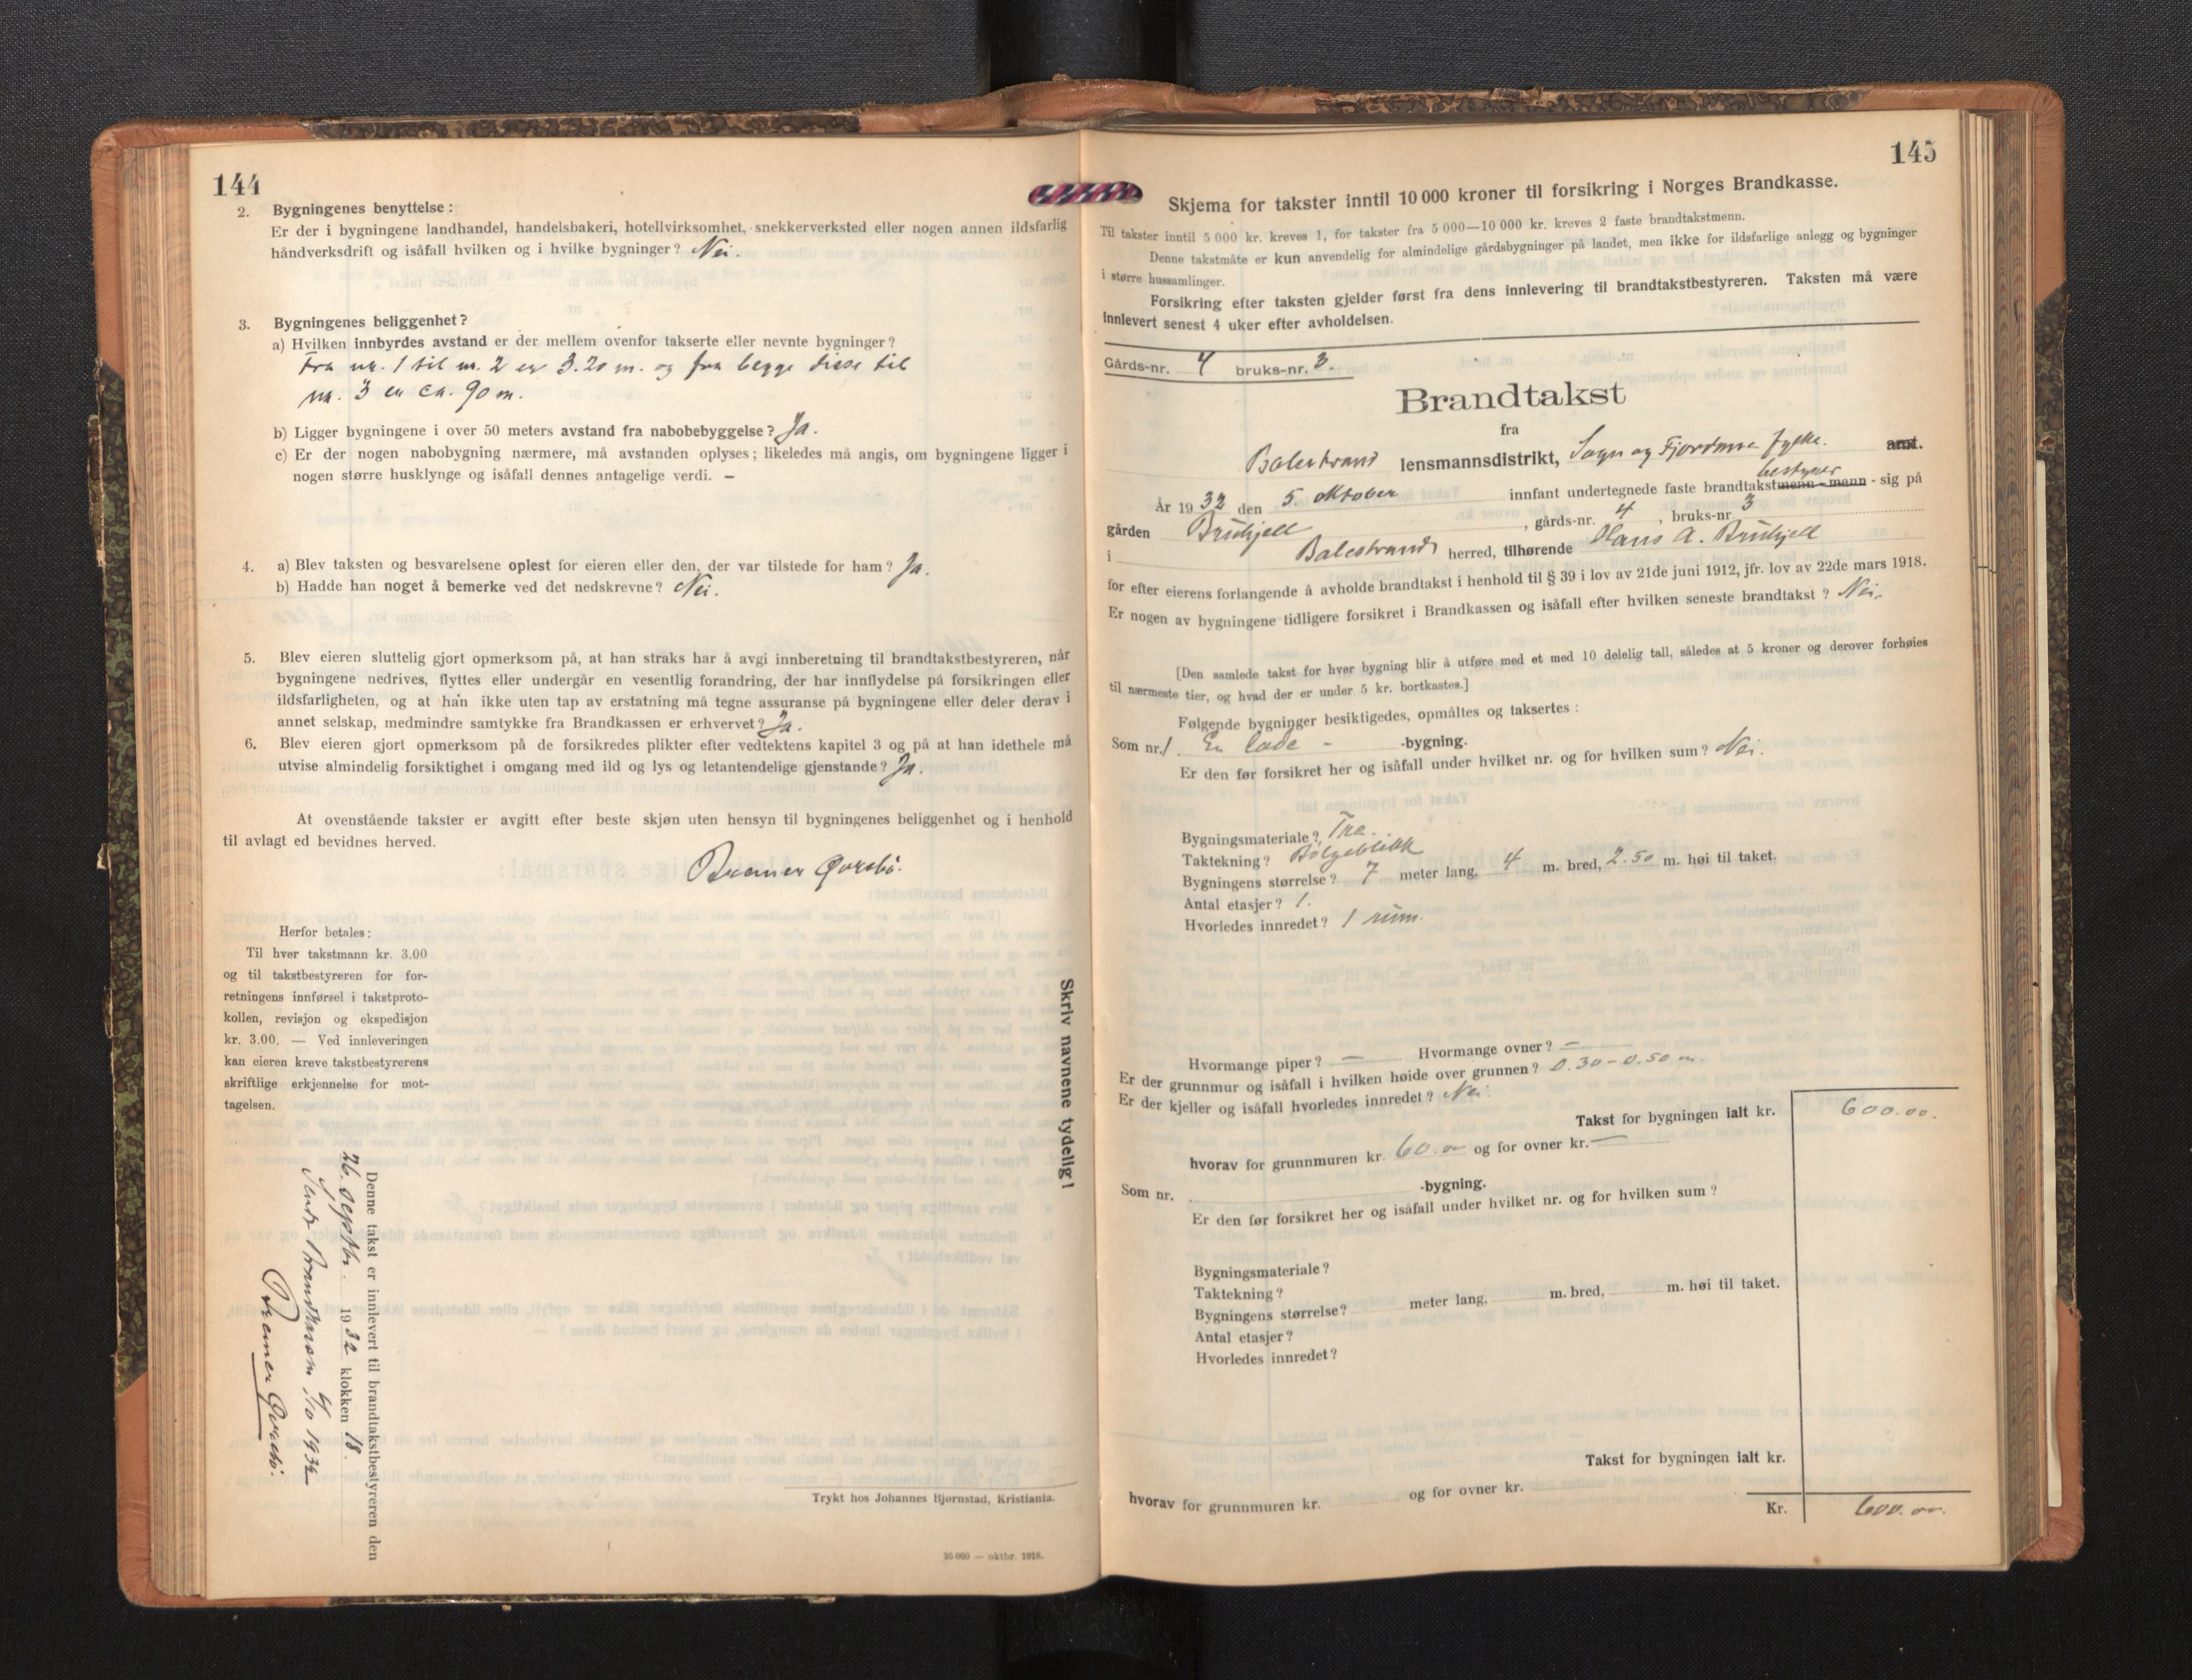 144
2. Bygningenes benyttelse:
Er der i bygningene landhandel, handelsbakeri, hotellvirksomhet, snekkerverksted eller nogen annen ildsfarlig
håndverksdrift og isåfall hvilken og i hvilke bygninger? Nei.
3. Bygningenes beliggenhet?
a) Hvilken innbyrdes avstand er der mellem ovenfor takserte eller nevnte bygninger?
Fra nr. 1 til nr. 2 er 3.20 m. og fra begge disse til
nr. 3 er ca. 90 m.
b) Ligger bygningene i over 50 meters avstand fra nabobebyggelse? Ja.
c) Er der nogen nabobygning nærmere, må avstanden oplyses; likeledes må angis, om bygningene ligger i
nogen større husklynge og isåfall dennes antagelige verdi. —
4. a) Blev taksten og besvarelsene oplest for eieren eller den, der var tilstede for ham? Ja.
b) Hadde han noget å bemerke ved det nedskrevne? Nei.
5. Blev eieren sluttelig gjort opmerksom på, at han straks har å avgi innberetning til brandtakstbestyreren, når
bygningene nedrives, flyttes eller undergår en vesentlig forandring, der har innflydelse på forsikringen eller
ildsfarligheten, og at han ikke uten tap av erstatning må tegne assuranse på bygningene eller deler derav i
annet selskap, medmindre samtykke fra Brandkassen er erhvervet? Ja.
6. Blev eieren gjort opmerksom på de forsikredes plikter efter vedtektens kapitel 3 og på at han idethele må
utvise almindelig forsiktighet i omgang med ild og lys og letantendelige gjenstande? Ja.
At ovenstående takster er avgitt efter beste skjøn uten hensyn til bygningenes beliggenhet og i henhold
til avlagt ed bevidnes herved.
Herfor betales:
Til hver takstmann kr. 3.00
og til takstbestyreren for for-
retningens innførsel i takstproto-
kollen, revisjon og ekspedisjon
kr. 3.00. — Ved innleveringen
kan eieren kreve takstbestyrerens
skriftlige erkjennelse for mot-
tagelsen.
Skriv navnene tydelig!
Denne takst er innlevert til brandtakstbestyreren den
26. septbr. 1932 klokken 18.
Sendt Brandkassen 4/10 1932
Trykt hos Johannes Bjørnstad, Kristiania.
— oktbr. 1918.
145
Skjema for takster inntil 10 000 kroner til forsikring i Norges Brandkasse.
Til takster inntil 5 000 kr. kreves 1, for takster fra 5 000—10 000 kr. kreves 2 faste brandtakstmenn.
Denne takstmåte er kun anvendelig for almindelige gårdsbygninger på landet, men ikke for ildsfarlige anlegg og bygninger
i større hussamlinger.
Forsikring efter taksten gjelder først fra dens innlevering til brandtakstbestyreren. Taksten må være
innlevert senest 4 uker efter avholdelsen.
Gårds-nr. 4 bruks-nr. 3.
Brandtakst
fra
Balestrand lensmannsdistrikt, Sogn og Fjordane fylke. amt.
bestyrer
År 1932 den 5. oktober innfant undertegnede faste brandtakstmenn - mann - sig på
gården Bruhjell, gårds-nr. 4, bruks-nr. 3
i Balestrand herred, tilhørende Hans A. Bruhjell
for efter eierens forlangende å avholde brandtakst i henhold til § 39 i lov av 21de juni 1912, jfr. lov av 22de mars 1918.
Er nogen av bygningene tidligere forsikret i Brandkassen og isåfall efter hvilken seneste brandtakst? Nei.
[Den samlede takst for hver bygning blir å utføre med et med 10 delelig tall, således at 5 kroner og derover forhøies
til nærmeste tier, og hvad der er under 5 kr. bortkastes.]
Følgende bygninger besiktigedes, opmåltes og taksertes:
Som nr. 1. En lade - -bygning.
Er den før forsikret her og isåfall under hvilket nr. og for hvilken sum? Nei.
Bygningsmateriale? Tre.
Taktekning? Bølgeblikk
Bygningens størrelse? 7 meter lang, 4 m. bred, 2.50 m. høi til taket.
Antal etasjer? 1.
Hvorledes innredet? 1 rum.
Hvormange piper? — Hvormange ovner? —
Er der grunnmur og isåfall i hvilken høide over grunnen? 0.30 - 0.50 m
Er der kjeller og isåfall hvorledes innredet? Nei.
Takst for bygningen ialt kr. 600.00.
hvorav for grunnmuren kr. 60.00 og for ovner kr. —
Som nr. -bygning.
Er den før forsikret her og isåfall under hvilket nr. og for hvilken sum?
Bygningsmateriale?
Taktekning?
Bygningens størrelse? meter lang, m. bred, m. høi til taket.
Antal etasjer?
Hvorledes innredet?
Takst for bygningen ialt kr.
hvorav for grunnmuren kr. og for ovner kr.
Kr. 600.00.